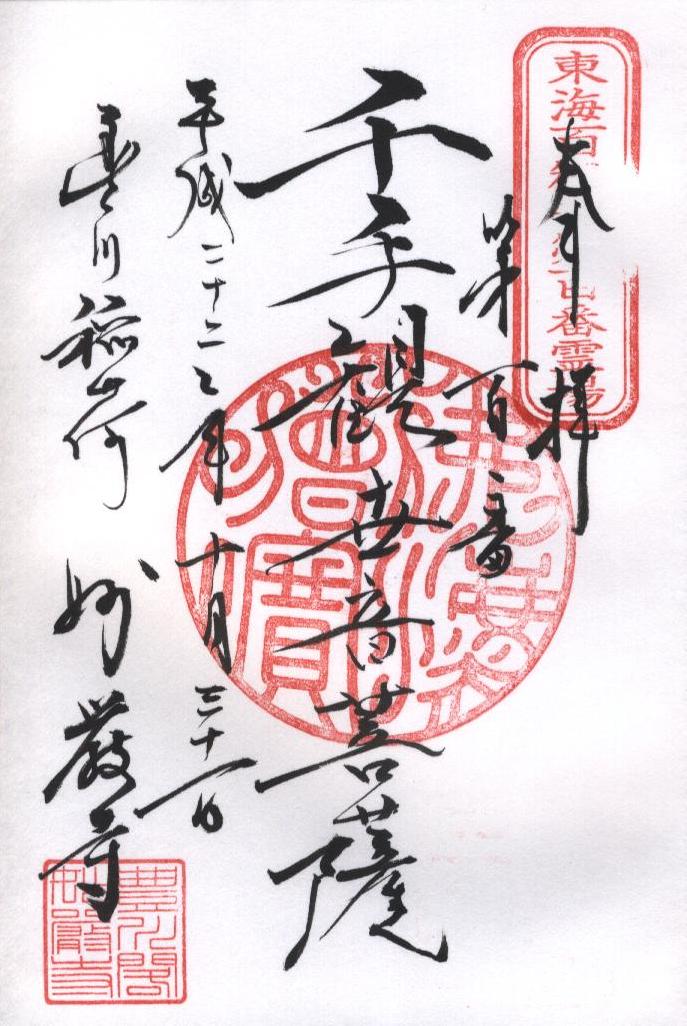 奉拝
東海百観音第百番霊場
第百番
千手観世音菩薩
平成二十二年十月三十一日
豊川稲荷 妙厳寺
佛法僧寶
豊川閣
妙嚴寺